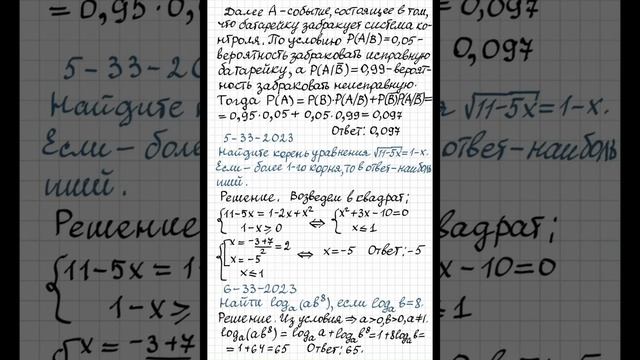 Далее А - событие, состоящее в том,
что батарейку забракует система ко-
нтроля. По условию P(A/B) = 0,05 -
вероятность забраковать исправную
батарейку, а P(A/B̅) = 0,99 - вероят-
ность забраковать неисправную.
Тогда P(A) = P(B)·P(A/B)+P(B̅)P(A/B̅)=
= 0,95·0,05 + 0,05·0,99 = 0,097
Ответ: 0,097
5-33-2023
Найдите корень уравнения √11-5x = 1-x.
Если - более 1-го корня, то в ответ - наиболь
ший.
Решение. Возведем в квадрат;
{11-5x = 1-2x+x² ⇔ {x²+3x-10=0
1-x ≥ 0 x ≤ 1
{x = -3+7/2 = 2
x = -5 ⇔ x = -5 Ответ: -5
x ≤ 1
6-33-2023
Найти logₐ(ab⁸), если logₐb = 8.
Решение. Из условия ⇒ a>0, b>0, a≠1.
logₐ(ab⁸) = logₐa + logₐb⁸ = 1+8logₐb =
= 1+64 = 65 Ответ: 65.